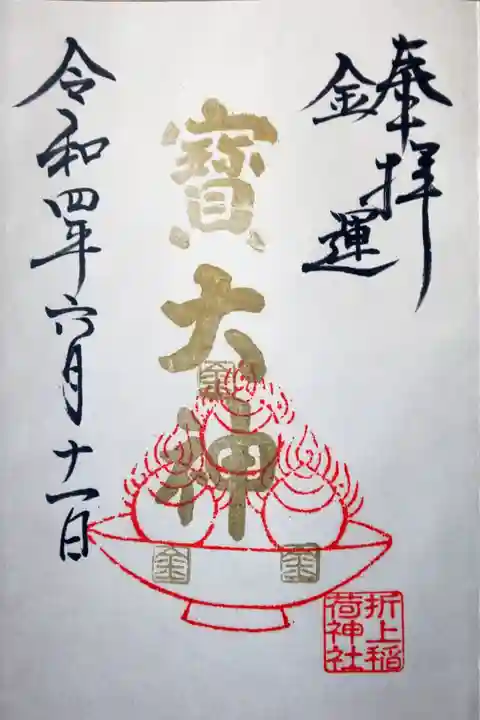 奉拝
金運
寶大神
金
金
金
令和四年六月十一日
折上稲
荷神社